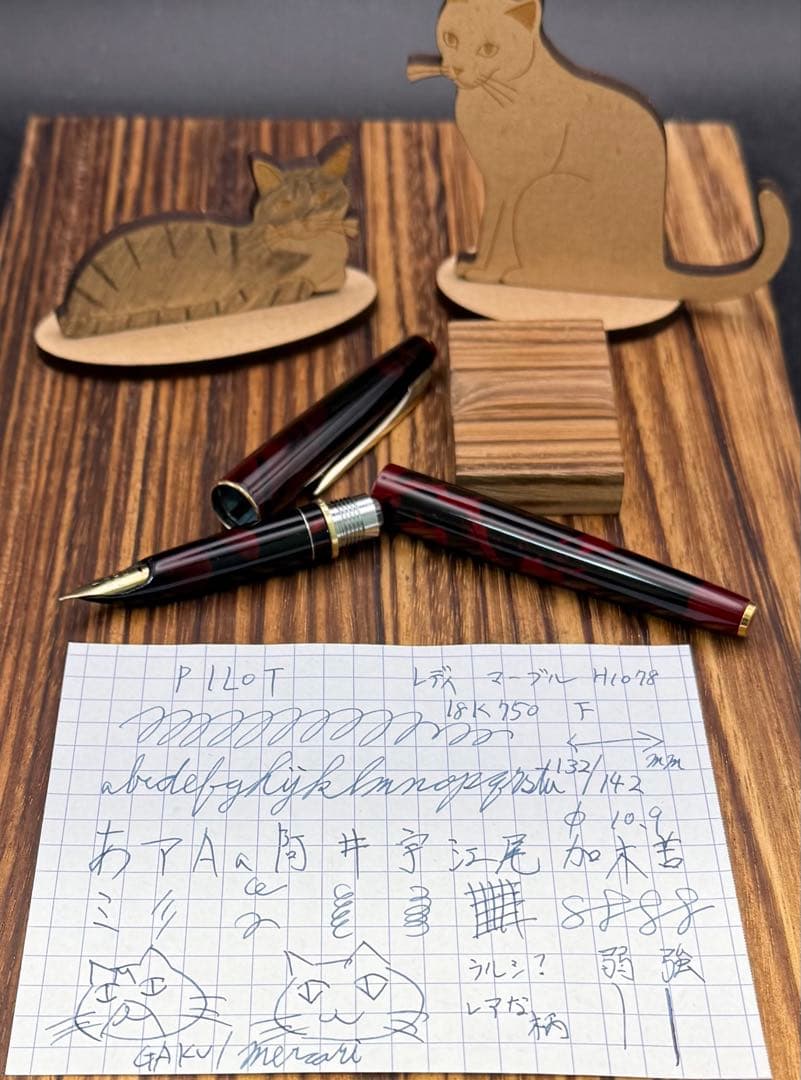 PILOT レディ マーブル H1078
18K 750 F
abcdefghijklmnopqrstu 132/142 mm
φ 10.9
あ ア A a 阿 井 宇 江 尾 加 木
ウルシ? 弱 強
レアな
柄
GAKU/mercari